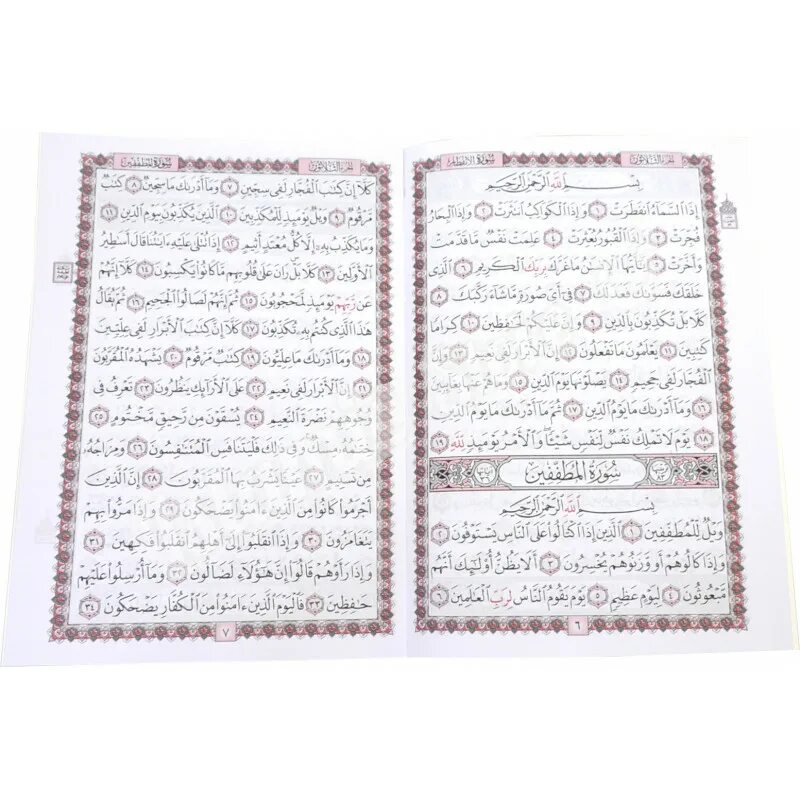 سورة الانفطار الجزء الثلاثون
بِسْمِ اللَّهِ الرَّحْمَٰنِ الرَّحِيمِ
إِذَا السَّمَاءُ انفَطَرَتْ ١ وَإِذَا الْكَوَاكِبُ انتَثَرَتْ ٢ وَإِذَا الْبِحَارُ
فُجِّرَتْ ٣ وَإِذَا الْقُبُورُ بُعْثِرَتْ ٤ عَلِمَتْ نَفْسٌ مَّا قَدَّمَتْ
وَأَخَّرَتْ ٥ يَٰأَيُّهَا الْإِنسَٰنُ مَا غَرَّكَ بِرَبِّكَ الْكَرِيمِ ٦ الَّذِي
خَلَقَكَ فَسَوَّىٰكَ فَعَدَلَكَ ٧ فِي أَيِّ صُورَةٍ مَّا شَاءَ رَكَّبَكَ ٨
كَلَّا بَلْ تُكَذِّبُونَ بِالدِّينِ ٩ وَإِنَّ عَلَيْكُمْ لَحَٰفِظِينَ ١٠ كِرَامًا
كَٰتِبِينَ ١١ يَعْلَمُونَ مَا تَفْعَلُونَ ١٢ إِنَّ الْأَبْرَارَ لَفِي نَعِيمٍ ١٣ وَإِنَّ
الْفُجَّارَ لَفِي جَحِيمٍ ١٤ يَصْلَوْنَهَا يَوْمَ الدِّينِ ١٥ وَمَا هُمْ عَنْهَا بِغَائِبِينَ
١٦ وَمَا أَدْرَىٰكَ مَا يَوْمُ الدِّينِ ١٧ ثُمَّ مَا أَدْرَىٰكَ مَا يَوْمُ الدِّينِ
١٨ يَوْمَ لَا تَمْلِكُ نَفْسٌ لِّنَفْسٍ شَيْئًا وَالْأَمْرُ يَوْمَئِذٍ لِّلَّهِ ١٩
سُورَةُ الْمُطَفِّفِينَ
بِسْمِ اللَّهِ الرَّحْمَٰنِ الرَّحِيمِ
وَيْلٌ لِّلْمُطَفِّفِينَ ١ الَّذِينَ إِذَا اكْتَالُوا عَلَى النَّاسِ يَسْتَوْفُونَ ٢
وَإِذَا كَالُوهُمْ أَو وَّزَنُوهُمْ يُخْسِرُونَ ٣ أَلَا يَظُنُّ أُولَٰئِكَ أَنَّهُم
مَّبْعُوثُونَ ٤ لِيَوْمٍ عَظِيمٍ ٥ يَوْمَ يَقُومُ النَّاسُ لِرَبِّ الْعَٰلَمِينَ ٦
٦
سورة المطففين الجزء الثلاثون
كَلَّا إِنَّ كِتَٰبَ الْفُجَّارِ لَفِي سِجِّينٍ ٧ وَمَا أَدْرَىٰكَ مَا سِجِّينٌ ٨ كِتَٰبٌ
مَّرْقُومٌ ٩ وَيْلٌ يَوْمَئِذٍ لِّلْمُكَذِّبِينَ ١٠ الَّذِينَ يُكَذِّبُونَ بِيَوْمِ الدِّينِ ١١
وَمَا يُكَذِّبُ بِهِ إِلَّا كُلُّ مُعْتَدٍ أَثِيمٍ ١٢ إِذَا تُتْلَىٰ عَلَيْهِ ءَايَٰتُنَا قَالَ أَسَٰطِيرُ
الْأَوَّلِينَ ١٣ كَلَّا بَلْ رَانَ عَلَىٰ قُلُوبِهِم مَّا كَانُوا يَكْسِبُونَ ١٤ كَلَّا إِنَّهُمْ
عَن رَّبِّهِمْ يَوْمَئِذٍ لَّمَحْجُوبُونَ ١٥ ثُمَّ إِنَّهُمْ لَصَالُوا الْجَحِيمِ ١٦ ثُمَّ يُقَالُ
هَٰذَا الَّذِي كُنتُم بِهِ تُكَذِّبُونَ ١٧ كَلَّا إِنَّ كِتَٰبَ الْأَبْرَارِ لَفِي عِلِّيِّينَ
١٨ وَمَا أَدْرَىٰكَ مَا عِلِّيُّونَ ١٩ كِتَٰبٌ مَّرْقُومٌ ٢٠ يَشْهَدُهُ الْمُقَرَّبُونَ
٢١ إِنَّ الْأَبْرَارَ لَفِي نَعِيمٍ ٢٢ عَلَى الْأَرَائِكِ يَنظُرُونَ ٢٣ تَعْرِفُ فِي
وُجُوهِهِمْ نَضْرَةَ النَّعِيمِ ٢٤ يُسْقَوْنَ مِن رَّحِيقٍ مَّخْتُومٍ ٢٥
خِتَٰمُهُ مِسْكٌ وَفِي ذَٰلِكَ فَلْيَتَنَافَسِ الْمُتَنَٰفِسُونَ ٢٦ وَمِزَاجُهُ
مِن تَسْنِيمٍ ٢٧ عَيْنًا يَشْرَبُ بِهَا الْمُقَرَّبُونَ ٢٨ إِنَّ الَّذِينَ
أَجْرَمُوا كَانُوا مِنَ الَّذِينَ ءَامَنُوا يَضْحَكُونَ ٢٩ وَإِذَا مَرُّوا بِهِمْ
يَتَغَامَزُونَ ٣٠ وَإِذَا انقَلَبُوا إِلَىٰ أَهْلِهِمُ انقَلَبُوا فَكِهِينَ ٣١
وَإِذَا رَأَوْهُمْ قَالُوا إِنَّ هَٰؤُلَاءِ لَضَالُّونَ ٣٢ وَمَا أُرْسِلُوا عَلَيْهِمْ
حَٰفِظِينَ ٣٣ فَالْيَوْمَ الَّذِينَ ءَامَنُوا مِنَ الْكُفَّارِ يَضْحَكُونَ ٣٤
٧